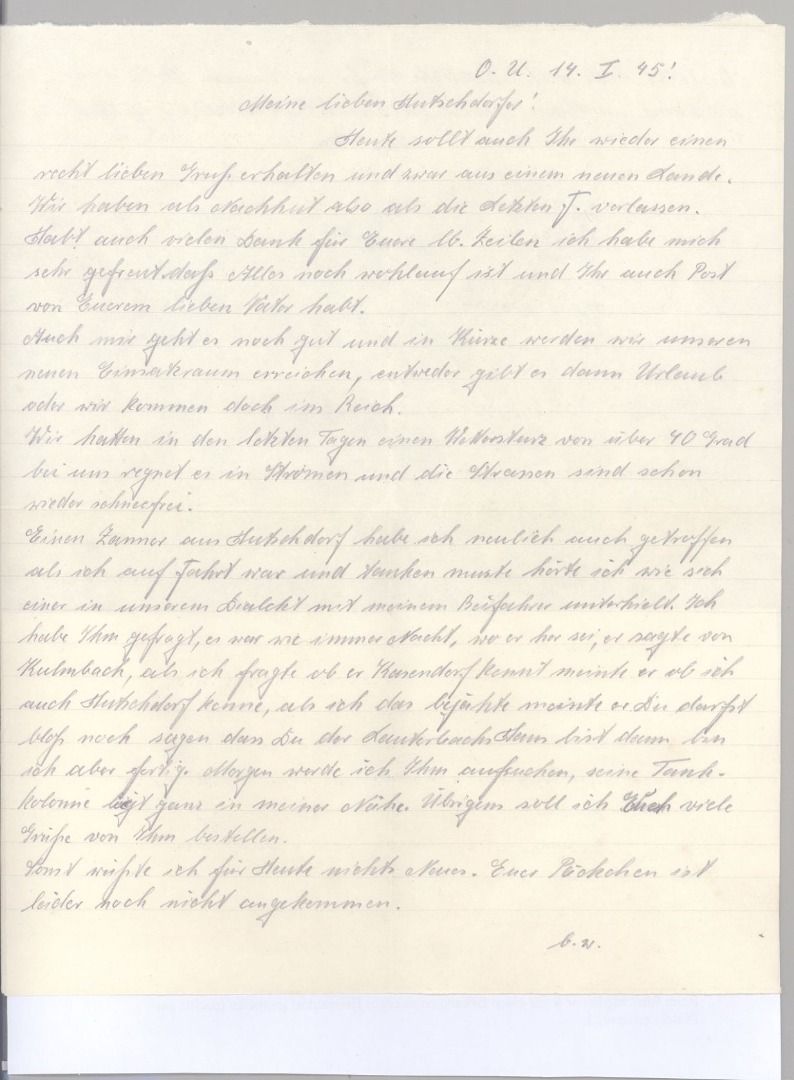 O. U. 14. I. 45!
Meine lieben Hutschdorfer!
Heute sollt auch Ihr wieder einen
recht lieben Gruß erhalten und zwar aus einem neuen Lande.
Wir haben als Nachhut also als die Letzten F. verlassen.
Habt auch vielen Dank für Euere lb. Zeilen ich habe mich
sehr gefreut daß Alles noch wohlauf ist und Ihr auch Post
von Euerem lieben Vater habt.
Auch mir geht es noch gut und in Kürze werden wir unseren
neuen Einsatzraum erreichen, entweder gibt es dann Urlaub
oder wir kommen doch ins Reich.
Wir hatten in den letzten Tagen einen Wettersturz von über 40 Grad
bei uns regnet es in Strömen und die Strassen sind schon
wieder schneefrei.
Einen Zanner aus Hutschdorf habe ich neulich auch getroffen
als ich auf Fahrt war und tanken muste hörte ich wie sich
einer in unserem Dialekt mit meinem Beifahrer unterhielt. Ich
habe Ihm gefragt, es war wie immer Nacht, wo er her sei, er sagte von
Kulmbach, als ich fragte ob er Kasendorf kennt meinte er ob ich
auch Hutschdorf kenne, als ich das bejahte meinte er Du darfst
bloß noch sagen dass Du der Lauterbachs Hans bist dann bin
ich aber fertig. Morgen werde ich Ihm aufsuchen, seine Tank-
kolonne liegt ganz in meiner Nähe. Übrigens soll ich Euch viele
Grüße von Ihm bestellen.
Sonst wüßte ich für Heute nichts Neues. Euer Päckchen ist
leider noch nicht angekommen.
b. w.